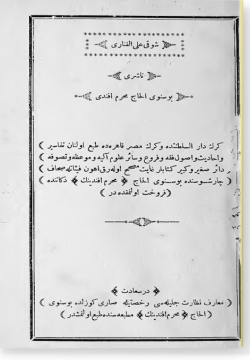 شوقى على القنارى
ناشرى
بوسنوى الحاج محرم افندى
كرك دار السلطنتده وكرك مصر قاهره ده طبع اولنان تفاسير
واحاديث واصول فقه وفروع وسائر علوم آليه وموعظه وتصوفه
دائر صغير وكبير كتابلر غايت مصحح اوله رق اهون فيئاتله صحاف
چارشوسنده بوسنوى الحاج محرم افندينك دكاننده
(فروخت اولنمقده در)
درسعادت
معارف نظارت جليله سى رخصتيله صارى كوزلده بوسنوى
الحاج محرم افندينك مطبعه سنده طبع اولنمشدر